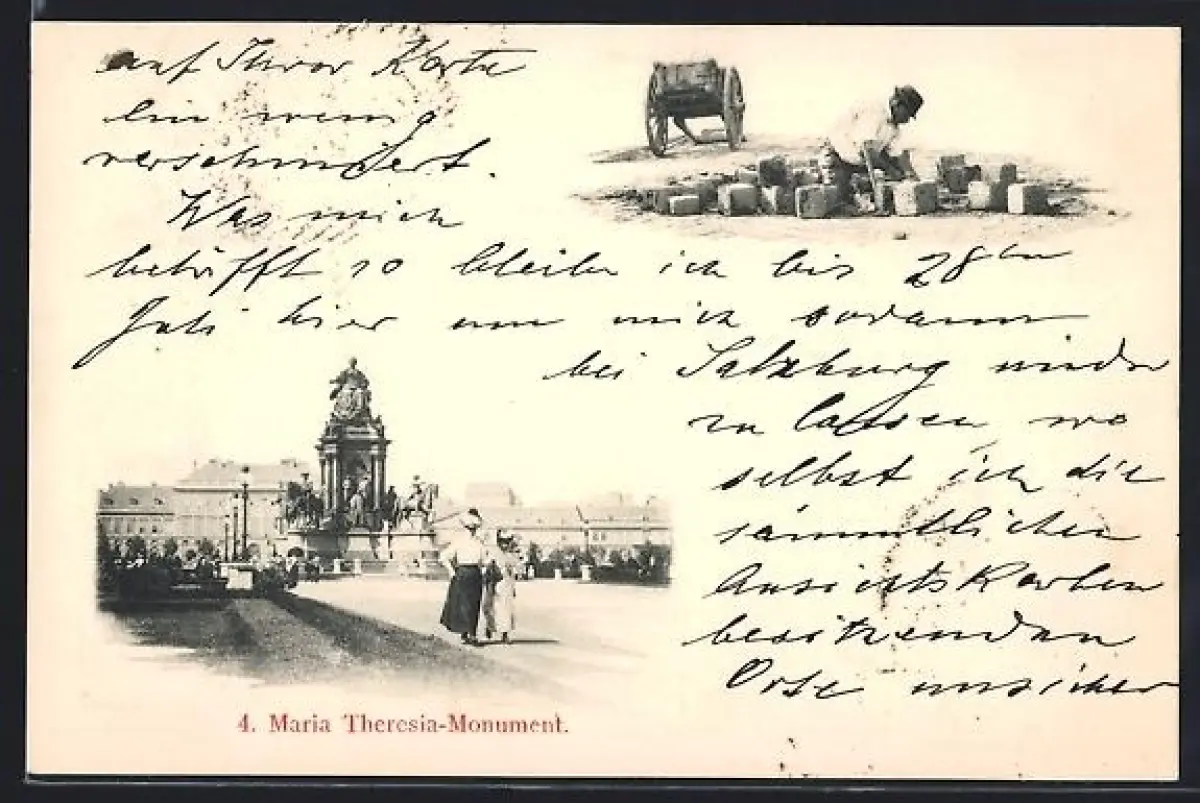 auf Ihrer Karte
ein wenig
verschmiert.
Was mich
betrifft so bleibe ich bis 28ten
Juli hier um mich sodann
bei Salzburg nieder
zu lassen wo
selbst ich die
sämmtlichen
Ansichts Karten
besitzenden
Orte unsicher
4. Maria Theresia-Monument.